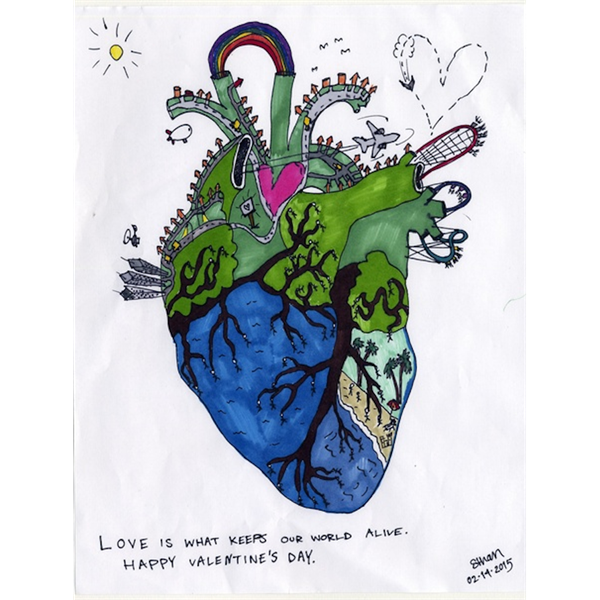 LOVE IS WHAT KEEPS OUR WORLD ALIVE.
HAPPY VALENTINE'S DAY.
02-14-2015